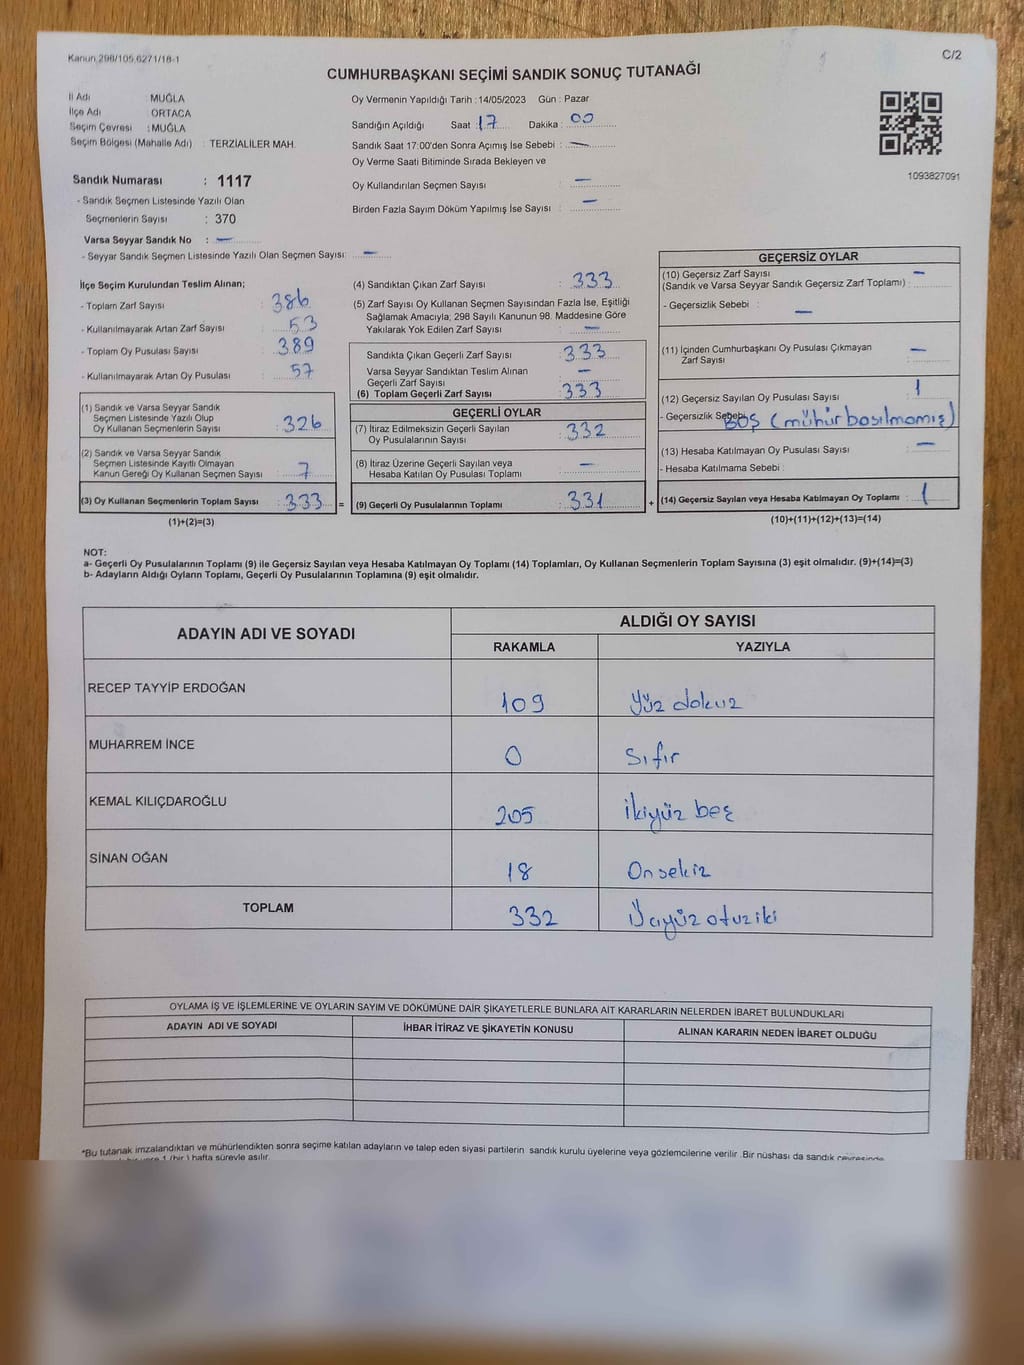 Kanun 298/105,6271/18-1
C/2
CUMHURBAŞKANI SEÇİMİ SANDIK SONUÇ TUTANAĞI
İl Adı MUĞLA
İlçe Adı ORTACA
Seçim Çevresi : MUĞLA
Seçim Bölgesi (Mahalle Adı) : TERZİALİLER MAH.
Sandık Numarası : 1117
- Sandık Seçmen Listesinde Yazılı Olan
Seçmenlerin Sayısı : 370
Varsa Seyyar Sandık No : —
- Seyyar Sandık Seçmen Listesinde Yazılı Olan Seçmen Sayısı: —
Oy Vermenin Yapıldığı Tarih : 14/05/2023 Gün : Pazar
Sandığın Açıldığı Saat : 17 Dakika : 00
Sandık Saat 17:00'den Sonra Açımış İse Sebebi : —
Oy Verme Saati Bitiminde Sırada Bekleyen ve
Oy Kullandırılan Seçmen Sayısı : —
Birden Fazla Sayım Döküm Yapılmış İse Sayısı : —
1093827091
İlçe Seçim Kurulundan Teslim Alınan;
- Toplam Zarf Sayısı : 386
- Kullanılmayarak Artan Zarf Sayısı : 53
- Toplam Oy Pusulası Sayısı : 389
- Kullanılmayarak Artan Oy Pusulası : 57
(1) Sandık ve Varsa Seyyar Sandık
Seçmen Listesinde Yazılı Olup
Oy Kullanan Seçmenlerin Sayısı : 326
(2) Sandık ve Varsa Seyyar Sandık
Seçmen Listesinde Kayıtlı Olmayan
Kanun Gereği Oy Kullanan Seçmen Sayısı : 7
(3) Oy Kullanan Seçmenlerin Toplam Sayısı : 333 =
(1)+(2)=(3)
(4) Sandıktan Çıkan Zarf Sayısı : 333
(5) Zarf Sayısı Oy Kullanan Seçmen Sayısından Fazla İse, Eşitliği
Sağlamak Amacıyla; 298 Sayılı Kanunun 98. Maddesine Göre
Yakılarak Yok Edilen Zarf Sayısı : —
Sandıkta Çıkan Geçerli Zarf Sayısı : 333
Varsa Seyyar Sandıktan Teslim Alınan
Geçerli Zarf Sayısı : —
(6) Toplam Geçerli Zarf Sayısı : 333
GEÇERLİ OYLAR
(7) İtiraz Edilmeksizin Geçerli Sayılan
Oy Pusulalarının Sayısı : 332
(8) İtiraz Üzerine Geçerli Sayılan veya
Hesaba Katılan Oy Pusulası Toplamı : —
(9) Geçerli Oy Pusulalarının Toplamı : 331 +
GEÇERSİZ OYLAR
(10) Geçersiz Zarf Sayısı —
(Sandık ve Varsa Seyyar Sandık Geçersiz Zarf Toplamı) :
- Geçersizlik Sebebi : —
(11) İçinden Cumhurbaşkanı Oy Pusulası Çıkmayan
Zarf Sayısı : —
(12) Geçersiz Sayılan Oy Pusulası Sayısı : 1
- Geçersizlik Sebebi: BOŞ (mühür basılmamış)
(13) Hesaba Katılmayan Oy Pusulası Sayısı : —
- Hesaba Katılmama Sebebi :
(14) Geçersiz Sayılan veya Hesaba Katılmayan Oy Toplamı : 1
(10)+(11)+(12)+(13)=(14)
NOT:
a- Geçerli Oy Pusulalarının Toplamı (9) ile Geçersiz Sayılan veya Hesaba Katılmayan Oy Toplamı (14) Toplamları, Oy Kullanan Seçmenlerin Toplam Sayısına (3) eşit olmalıdır. (9)+(14)=(3)
b- Adayların Aldığı Oyların Toplamı, Geçerli Oy Pusulalarının Toplamına (9) eşit olmalıdır.
ADAYIN ADI VE SOYADI
ALDIĞI OY SAYISI
RAKAMLA YAZIYLA
RECEP TAYYİP ERDOĞAN 109 Yüz dokuz
MUHARREM İNCE 0 Sıfır
KEMAL KILIÇDAROĞLU 205 ikiyüz beş
SİNAN OĞAN 18 Onsekiz
TOPLAM 332 Üçyüz otuz iki
OYLAMA İŞ VE İŞLEMLERİNE VE OYLARIN SAYIM VE DÖKÜMÜNE DAİR ŞİKAYETLERLE BUNLARA AİT KARARLARIN NELERDEN İBARET BULUNDUKLARI
ADAYIN ADI VE SOYADI İHBAR İTİRAZ VE ŞİKAYETİN KONUSU ALINAN KARARIN NEDEN İBARET OLDUĞU
*Bu tutanak imzalandıktan ve mühürlendikten sonra seçime katılan adayların ve talep eden siyasi partilerin sandık kurulu üyelerine veya gözlemcilerine verilir .Bir nüshası da sandık çevresinde
1 (bir ) hafta süreyle asılır.